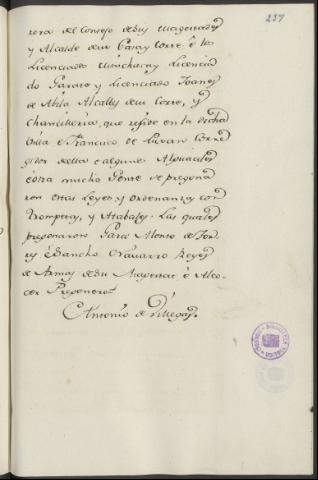 237
rera del Consejo de sus Magestades
y Alcalde de su Casa y Corte è los
Licenciados Licencia
do y Licenciado Joanes
de Abila Alcaldes de su Corte, y
Chancilleria, que reside en la dicha
Villa è Francisco de Corre
gidor della è algunos Alguaciles
è otra mucha Gente se pregona
ron estas Leyes y Ordenanzas con
Trompetas, y Atabales: Las quales
pregonaron Garci Alonso de Tor
res è Sancho Navarro Reyes
de Armas de su Magestad è Alco-
cer Pregonero
Antonio de Villegas